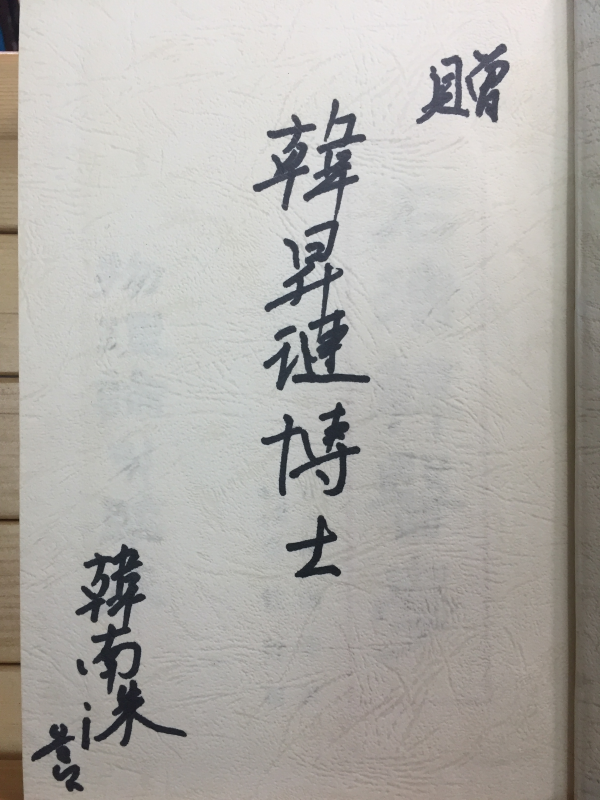 贈
韓昇謰博士
韓南洙